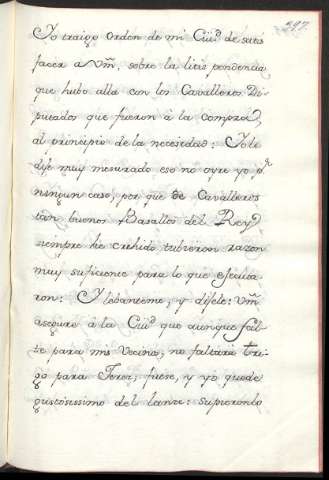 297.
Yo traigo orden de mi Ciud. de satis
facer a Vm̃, sobre la litis pendencia
que hubo alla con los Cavalleros Di-
putados que fueron â la compra,
al principio de la necesidad: Yo le
dije muy mesurado eso no oyre yo pr
ningun caso, por que de Cavalleros
tan buenos Basallos del Rey,
siempre he crehido tubieron razon
muy suficiente para lo que ejecuta
ron: Y lebantème, y dijele: Vm̃
asegure â la Ciud que aunque fal-
te para mis Vecinos, no faltarà tri-
go para Jerez; fuese, y yo quede
gustosissimo del lance: supieronlo